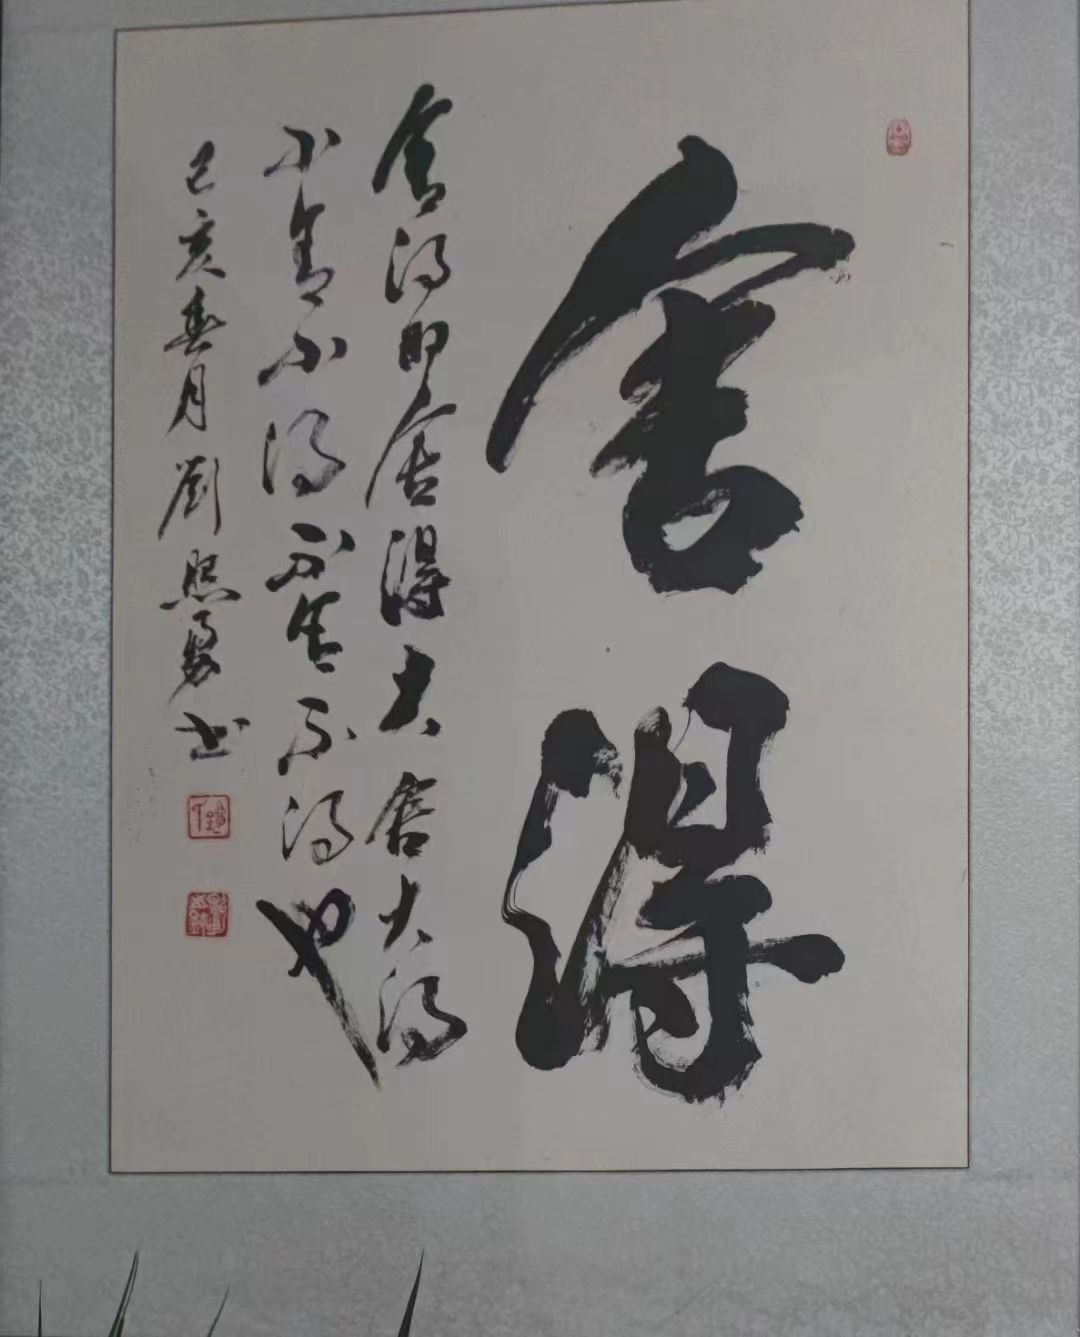 舍得
舍得即舍得大舍大得
小舍小得不舍不得也
己亥春月劉书